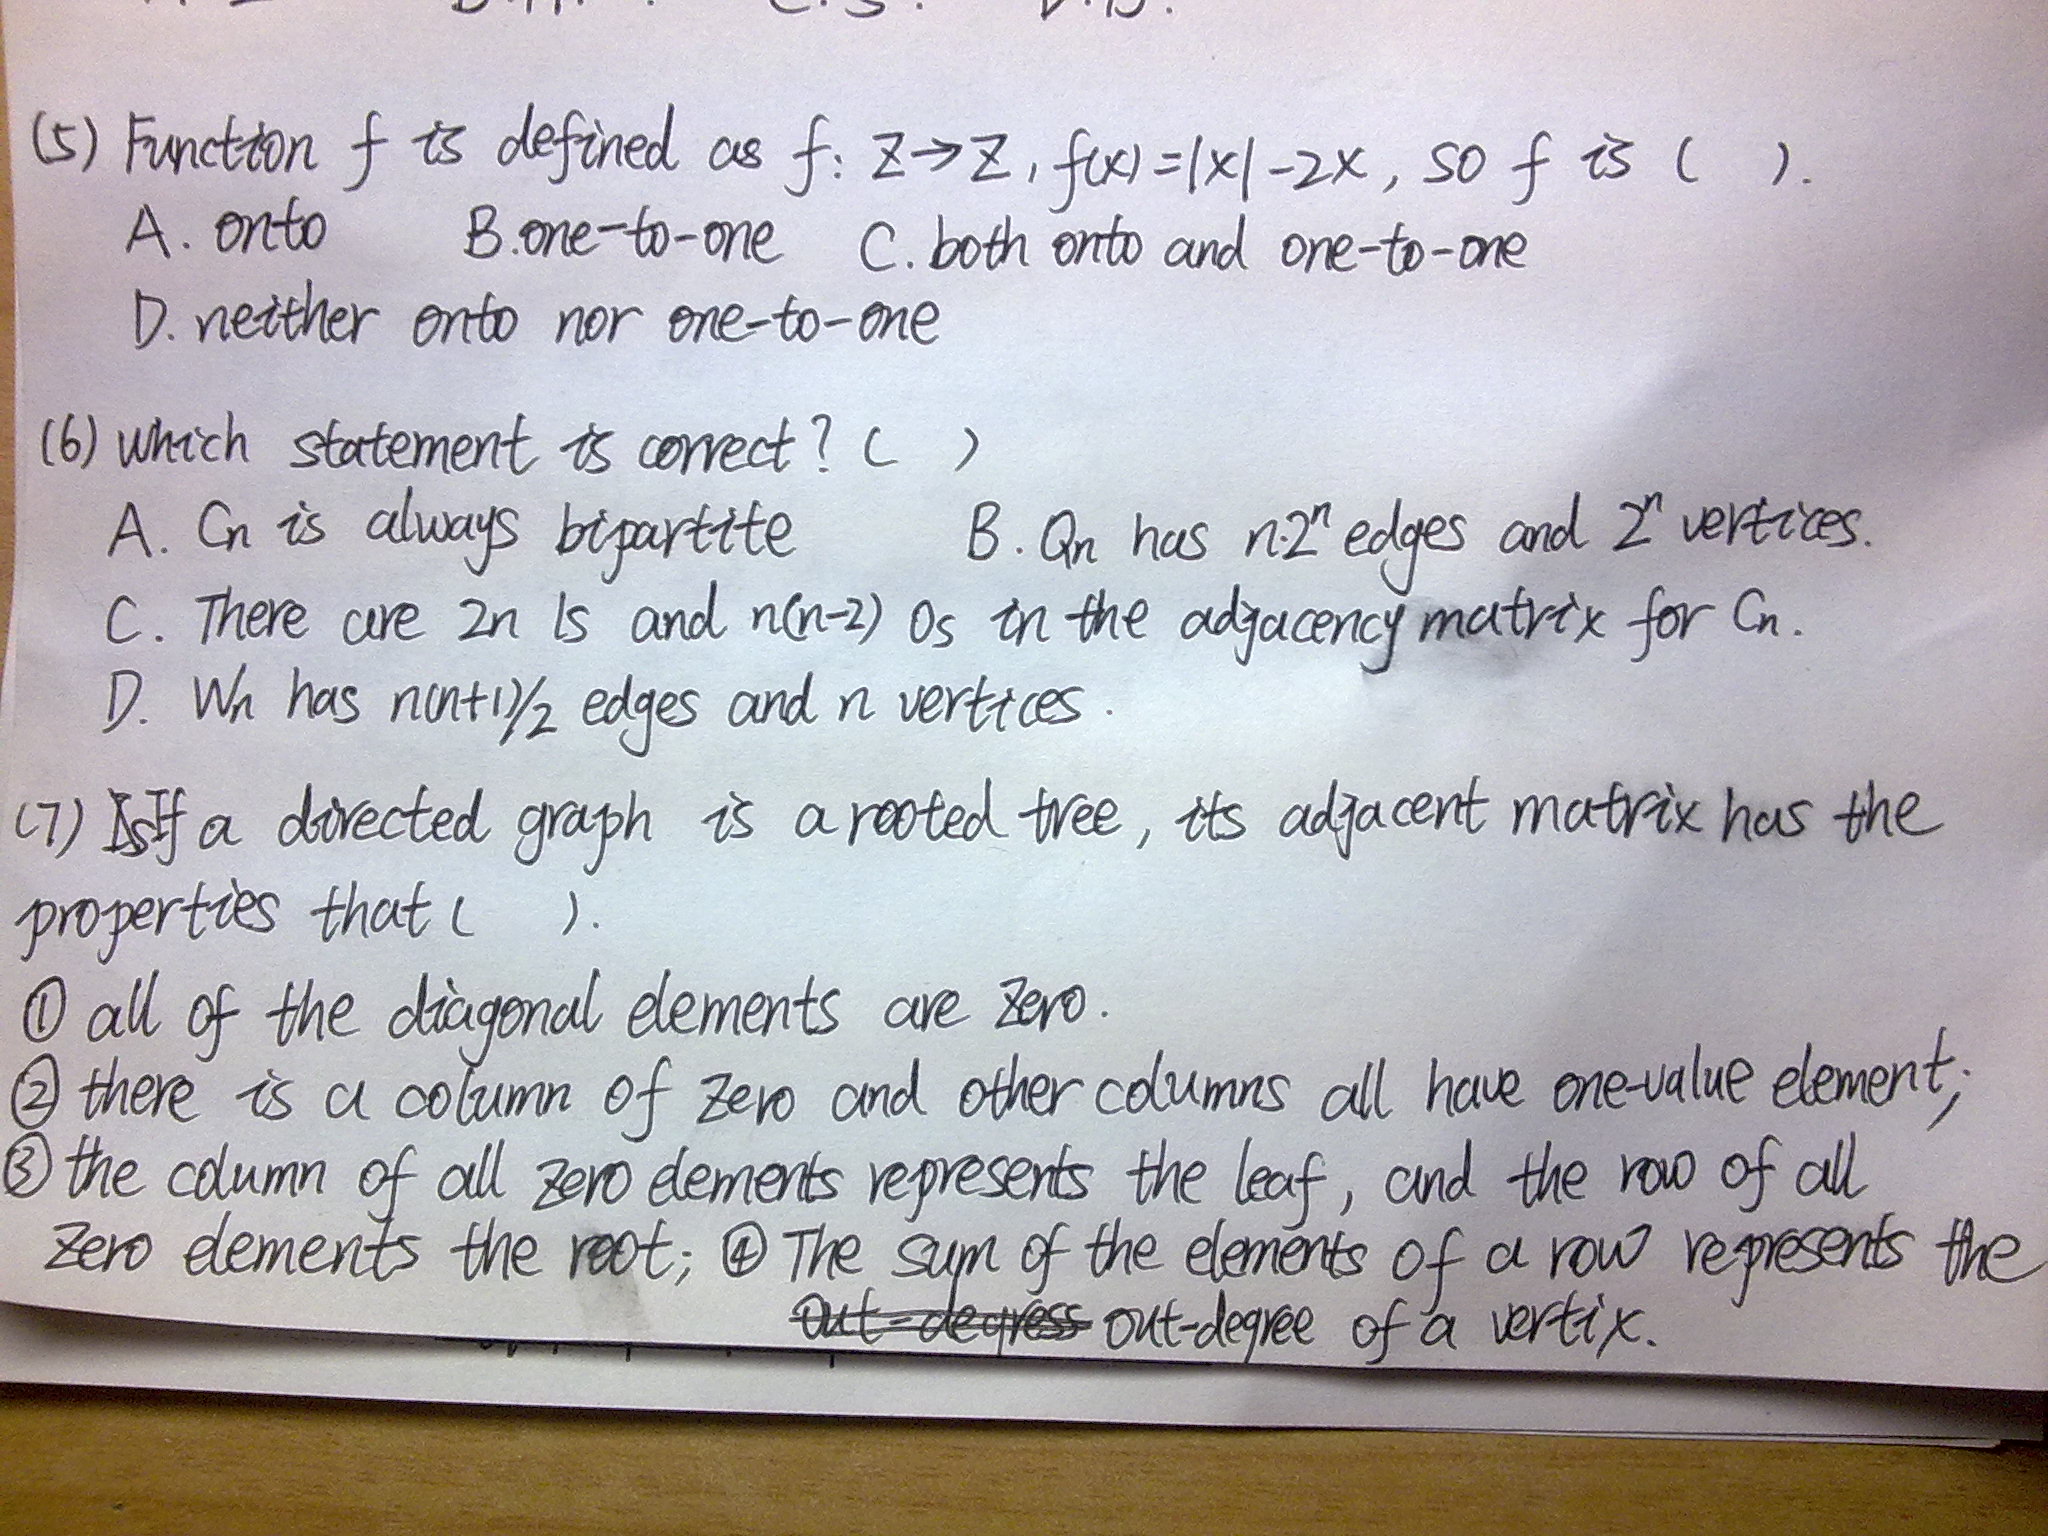 (5) Function f is defined as f: Z→Z, f(x)=|x|-2x, so f is ( ).
A. onto B. one-to-one C. both onto and one-to-one
D. neither onto nor one-to-one
(6) Which statement is correct? ( )
A. Cn is always bipartite B. Qn has n·2ⁿ edges and 2ⁿ vertices.
C. There are 2n 1s and n(n-2) 0s in the adjacency matrix for Cn.
D. Wn has n(n+1)/2 edges and n vertices.
(7) If a directed graph is a rooted tree, its adjacent matrix has the
properties that ( ).
① all of the diagonal elements are zero.
② there is a column of zero and other columns all have one-value element;
③ the column of all zero elements represents the leaf, and the row of all
zero elements the root; ④ The sum of the elements of a row represents the
out-degress out-degree of a vertix.